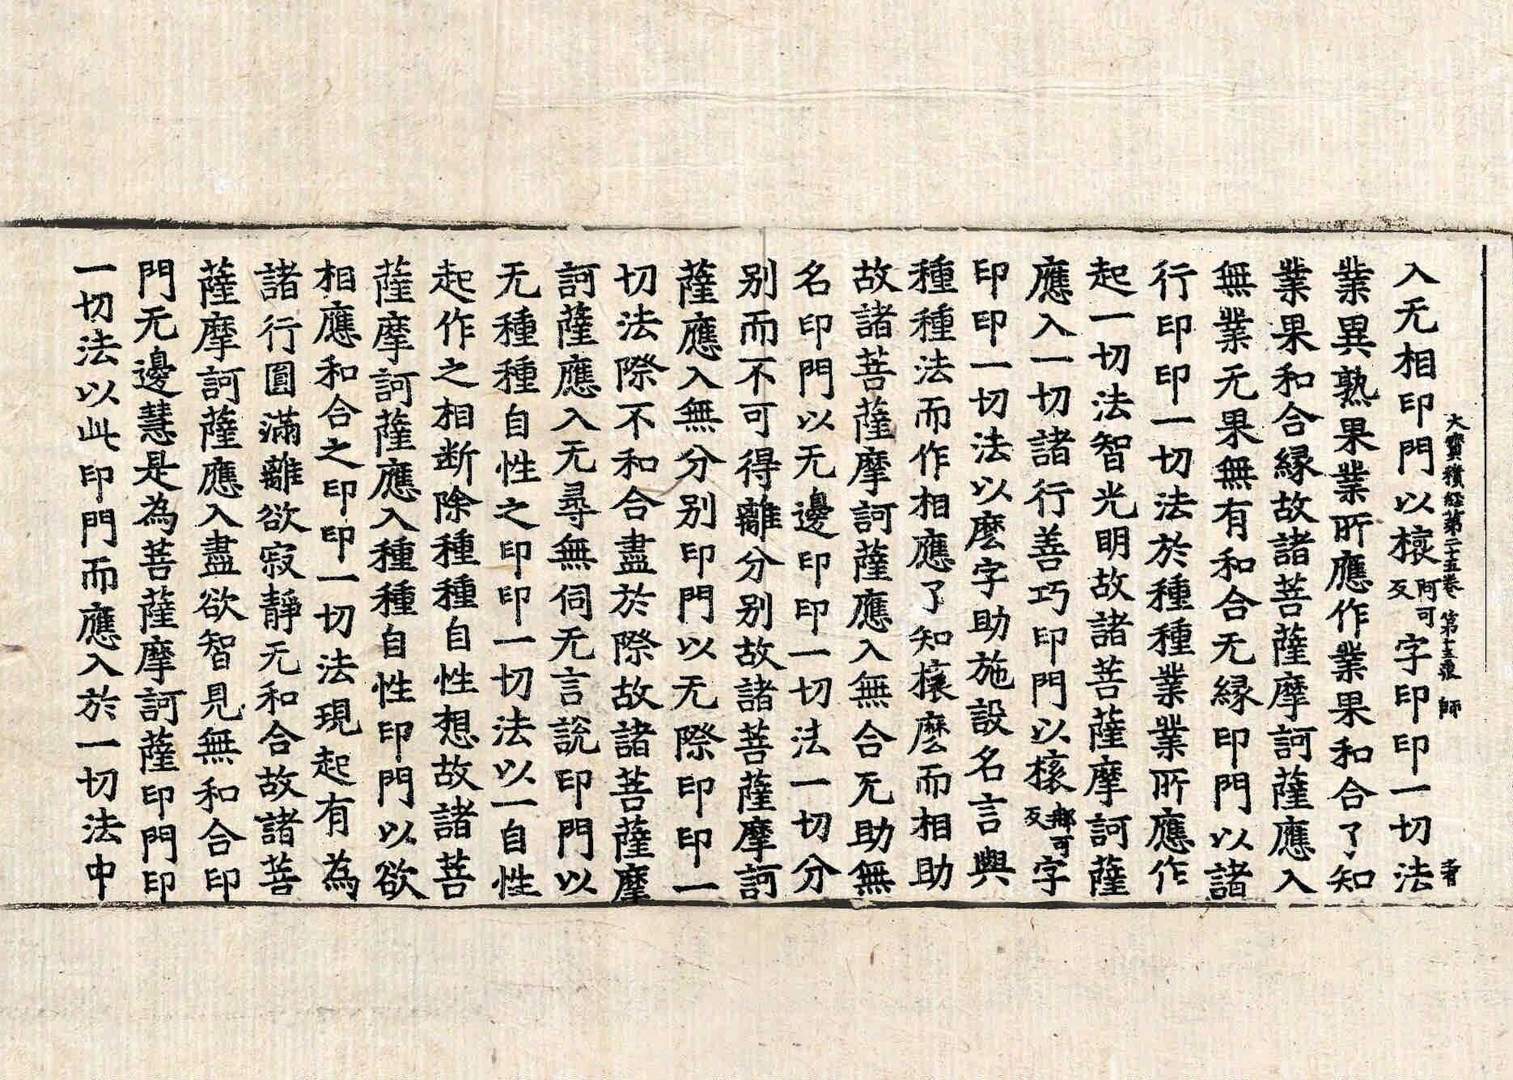 大寶積經第二十五卷 第十五張 師
入无相印門以榱阿可反字印印一切法
業異熟果業所應作業果和合了知
業果和合緣故諸菩薩摩訶薩應入
無業无果無有和合无緣印門以諸
行印印一切法於種種業業所應作
起一切法智光明故諸菩薩摩訶薩
應入一切諸行善巧印門以榱鄉可反字
印印一切法以麽字助施設名言與
種種法而作相應了知榱麽而相助
故諸菩薩摩訶薩應入無合无助無
名印門以无邊印印一切法一切分
別而不可得離分別故諸菩薩摩訶
薩應入無分別印門以无際印印一
切法際不和合盡於際故諸菩薩摩
訶薩應入无尋無伺无言說印門以
无種種自性之印印一切法以一自性
起作之相斷除種種自性想故諸菩
薩摩訶薩應入種種自性印門以欲
相應和合之印印一切法現起有為
諸行圓滿離欲寂靜无和合故諸菩
薩摩訶薩應入盡欲智見無和合印
門无邊慧是為菩薩摩訶薩印門印
一切法以此印門而應入於一切法中